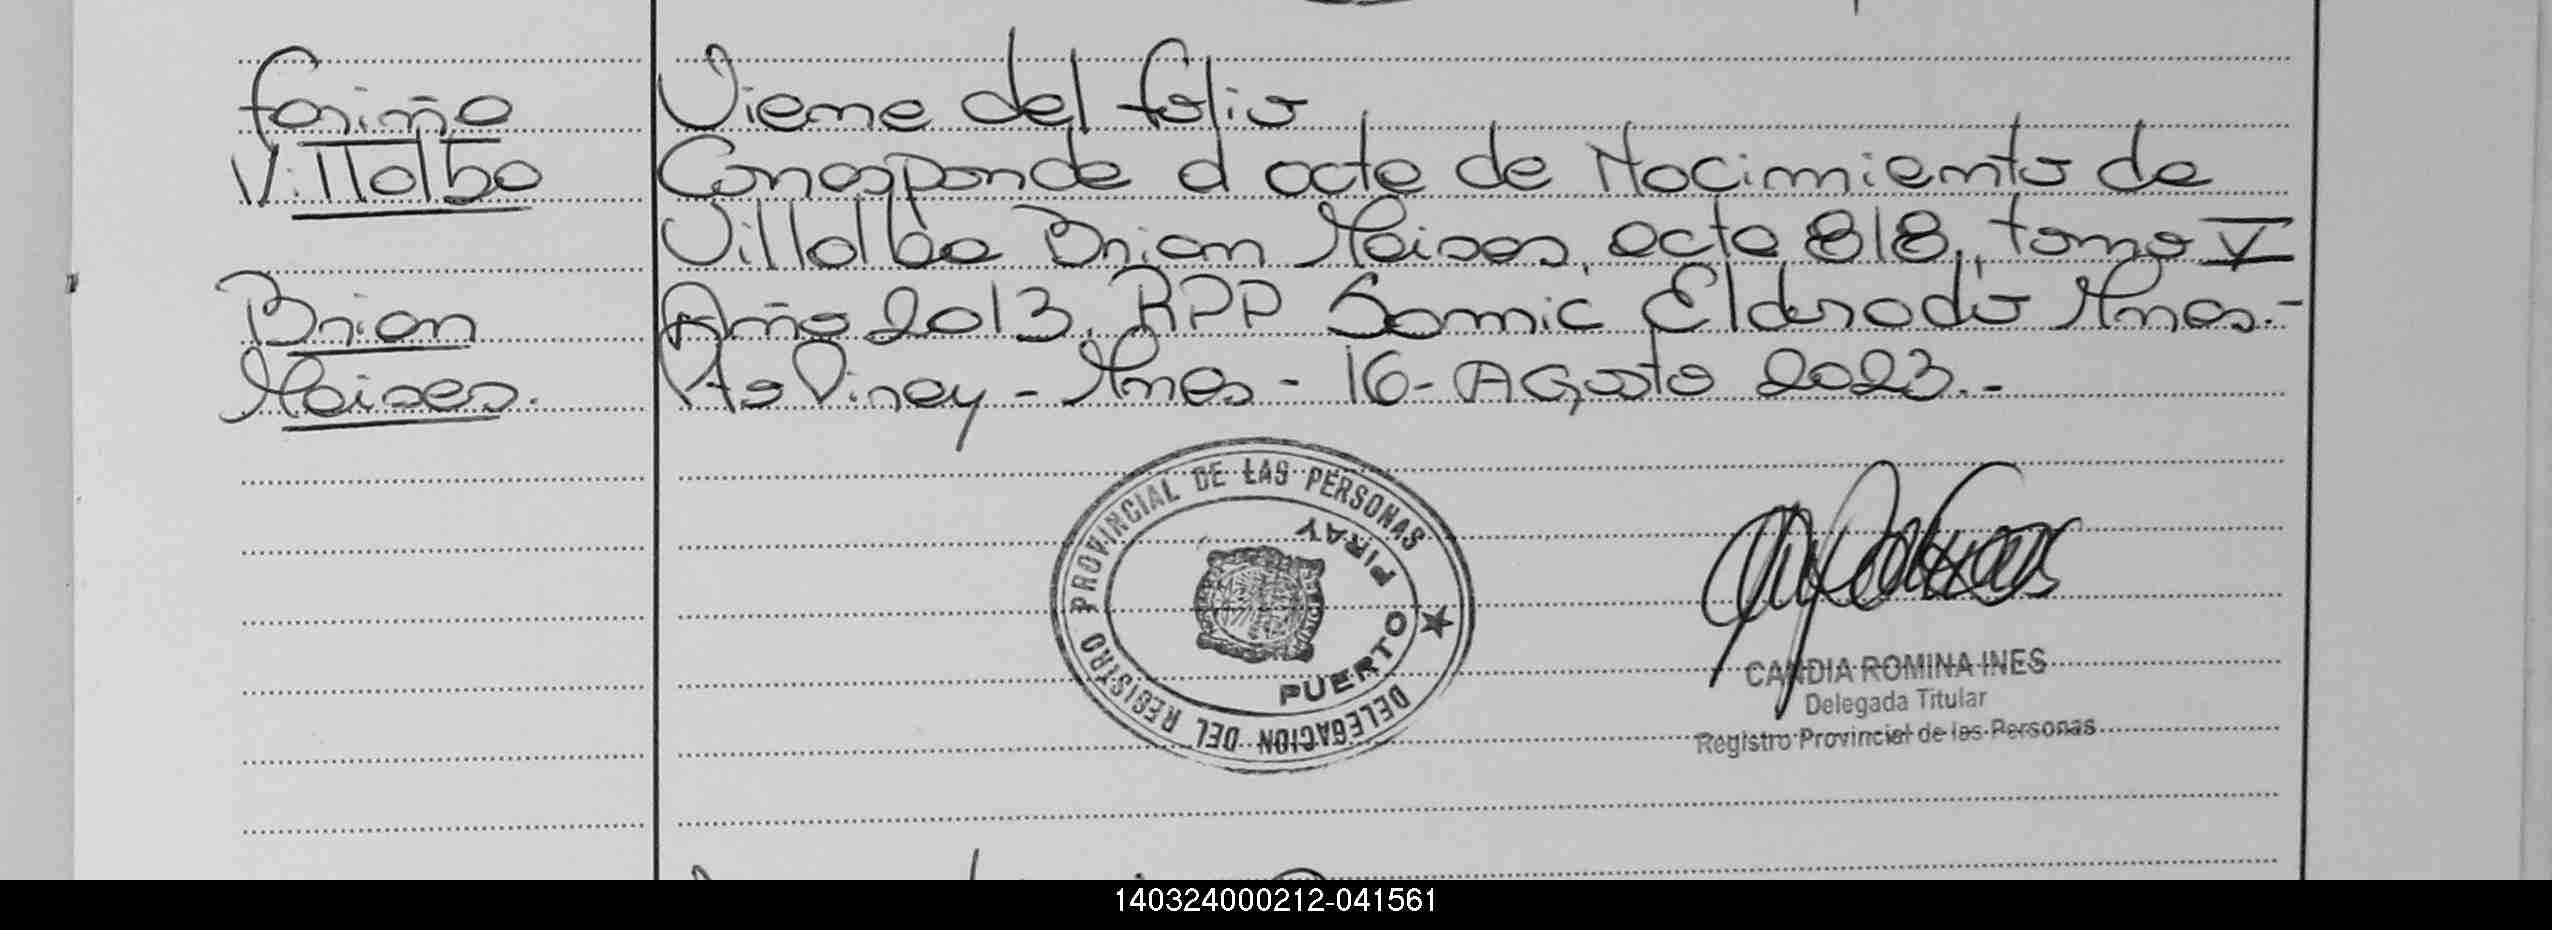 Fariña
Villalba
Brian
Moises.
Viene del folio
Corresponde a acta de Nacimiento de
Villalba Brian Moises, acta 818, tomo V
Año 2013, RPP Samic Eldorado Mnes.-
Pto Piray - Mnes - 16 - Agosto 2023.-
DELEGACION DEL REGISTRO PROVINCIAL DE LAS PERSONAS
PUERTO PIRAY
CANDIA ROMINA INES
Delegada Titular
Registro Provincial de las Personas
140324000212-041561